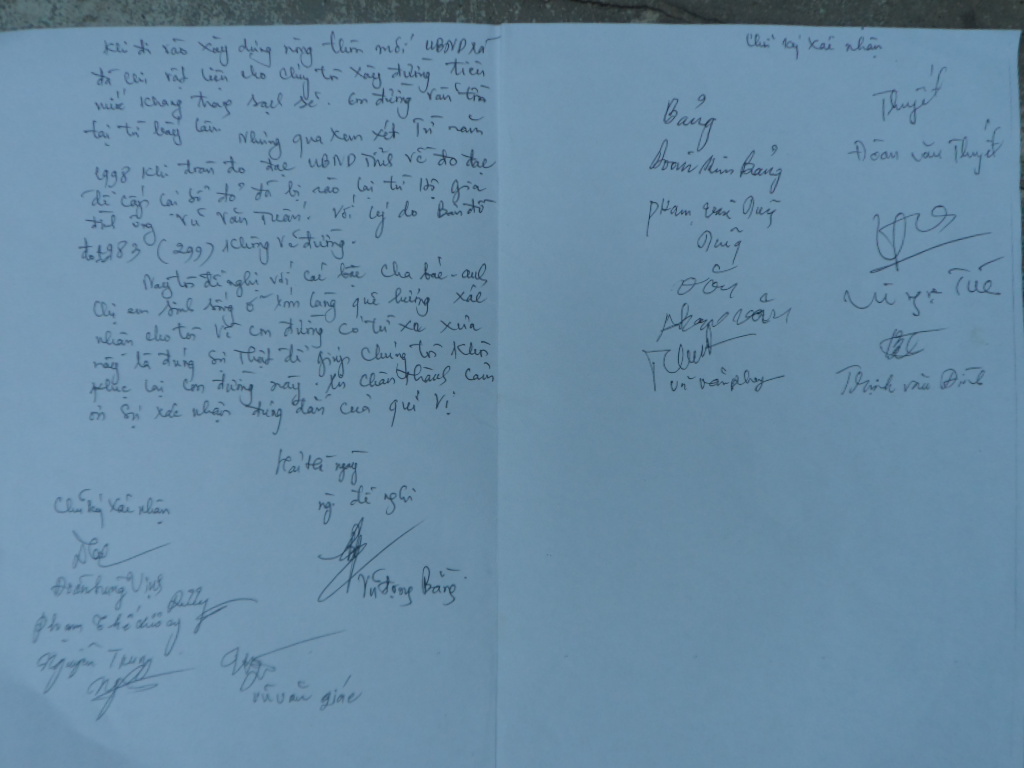 Khi đi vào xây dựng nông thôn mới UBND xã
đã cho vật liệu cho chúng tôi xây đường tiêu
nước khang trang sạch sẽ. Con đường vẫn tồn
tại từ bấy lâu Nhưng qua xem xét Từ năm
1998 khi đoàn đo đạc UBND tỉnh về đo đạc
để cấp lại sổ đỏ đã bị nào lại từ hộ gia
đình ông Vũ Văn Tuấn. Với lý do Bản đồ
1983 (299) không vẽ đường.
Nay tôi đề nghị với các bậc cha bác - anh
Chị em sinh sống ở xóm làng quê hương xác
nhận cho tôi Về con đường có từ xa xưa
này là đúng sự thật để giúp chúng tôi khôi
phục lại con đường này. Xin chân thành cảm
ơn sự xác nhận đúng đắn của quí vị
ngày
ng đề nghị
Vũ Trọng Bằng
Chữ ký xác nhận
Đoàn Trung Vịnh
Phạm Thế
Nguyễn Trung
Vũ Văn giác
Chữ ký xác nhận
Bảng
Đoàn Minh Bảng
Phạm Văn Quý
Quý
Vũ Văn phng
Thuyết
Đoàn Văn Thuyết
Vũ Ngọc Tiếc
Thịnh Văn Đình